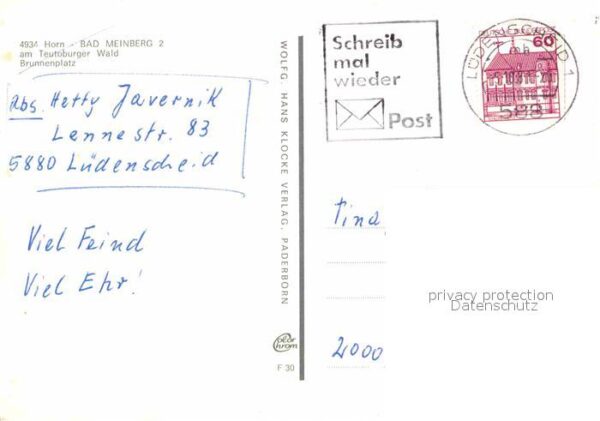 4934 Horn - BAD MEINBERG 2
am Teutoburger Wald
Brunnenplatz
Abs. Hetty Javernik
Lennestr. 83
5880 Lüdenscheid
Viel Feind
Viel Ehr!
WOLFG. HANS KLOCKE VERLAG, PADERBORN
Color
chrom
F 30
Schreib
mal
wieder
Post
60
LÜDENSCHEID 1
588
Tina
2000
privacy protection
Datenschutz